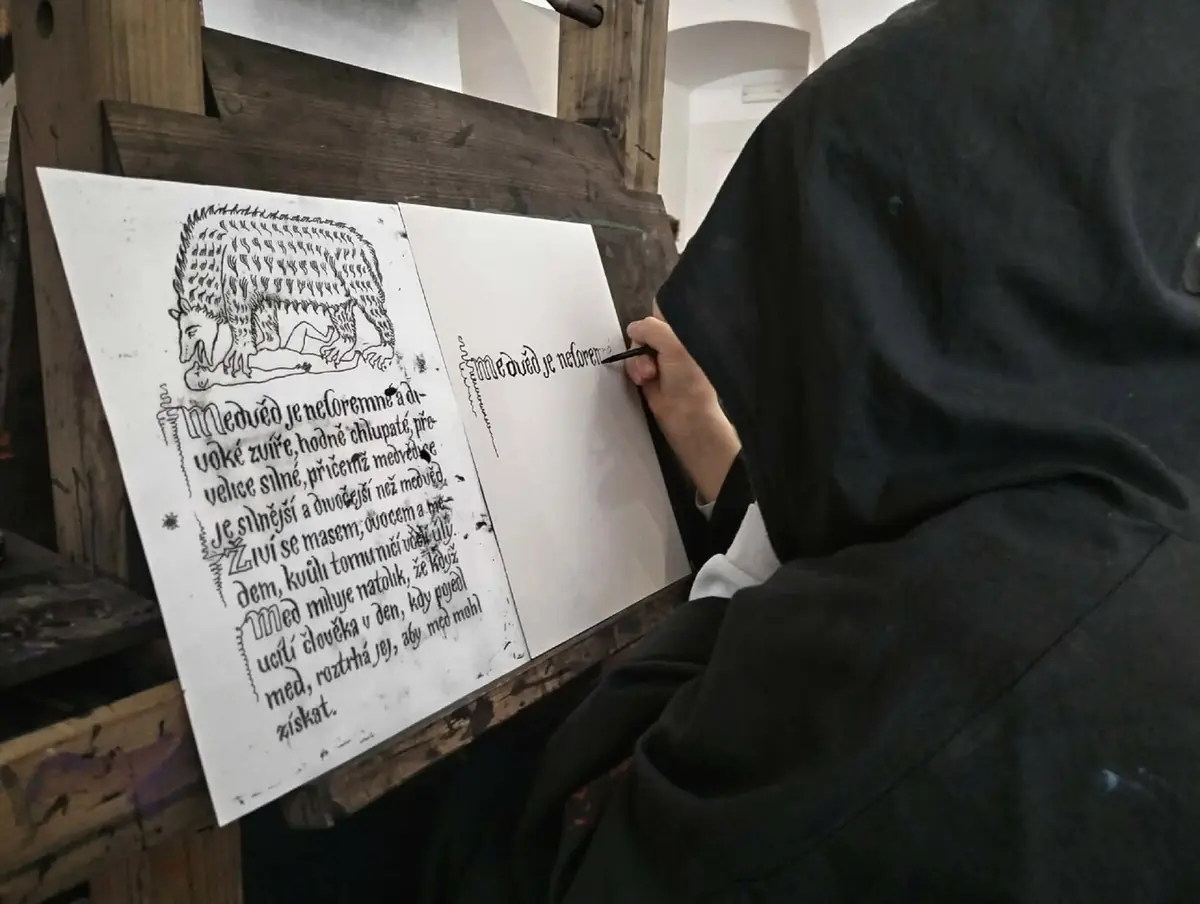 Medvěd je neforemné a di-
voké zvíře, hodně chlupaté, pře-
velice silné, přičemž medvědice
je silnější a divočejší než medvěd.
Živí se masem, ovocem a me-
dem, kvůli tomu ničí včelí úly.
Med miluje natolik, že když
ucítí člověka v den, kdy pojedl
med, roztrhá jej, aby med mohl
získat.
Medvěd je neforemn